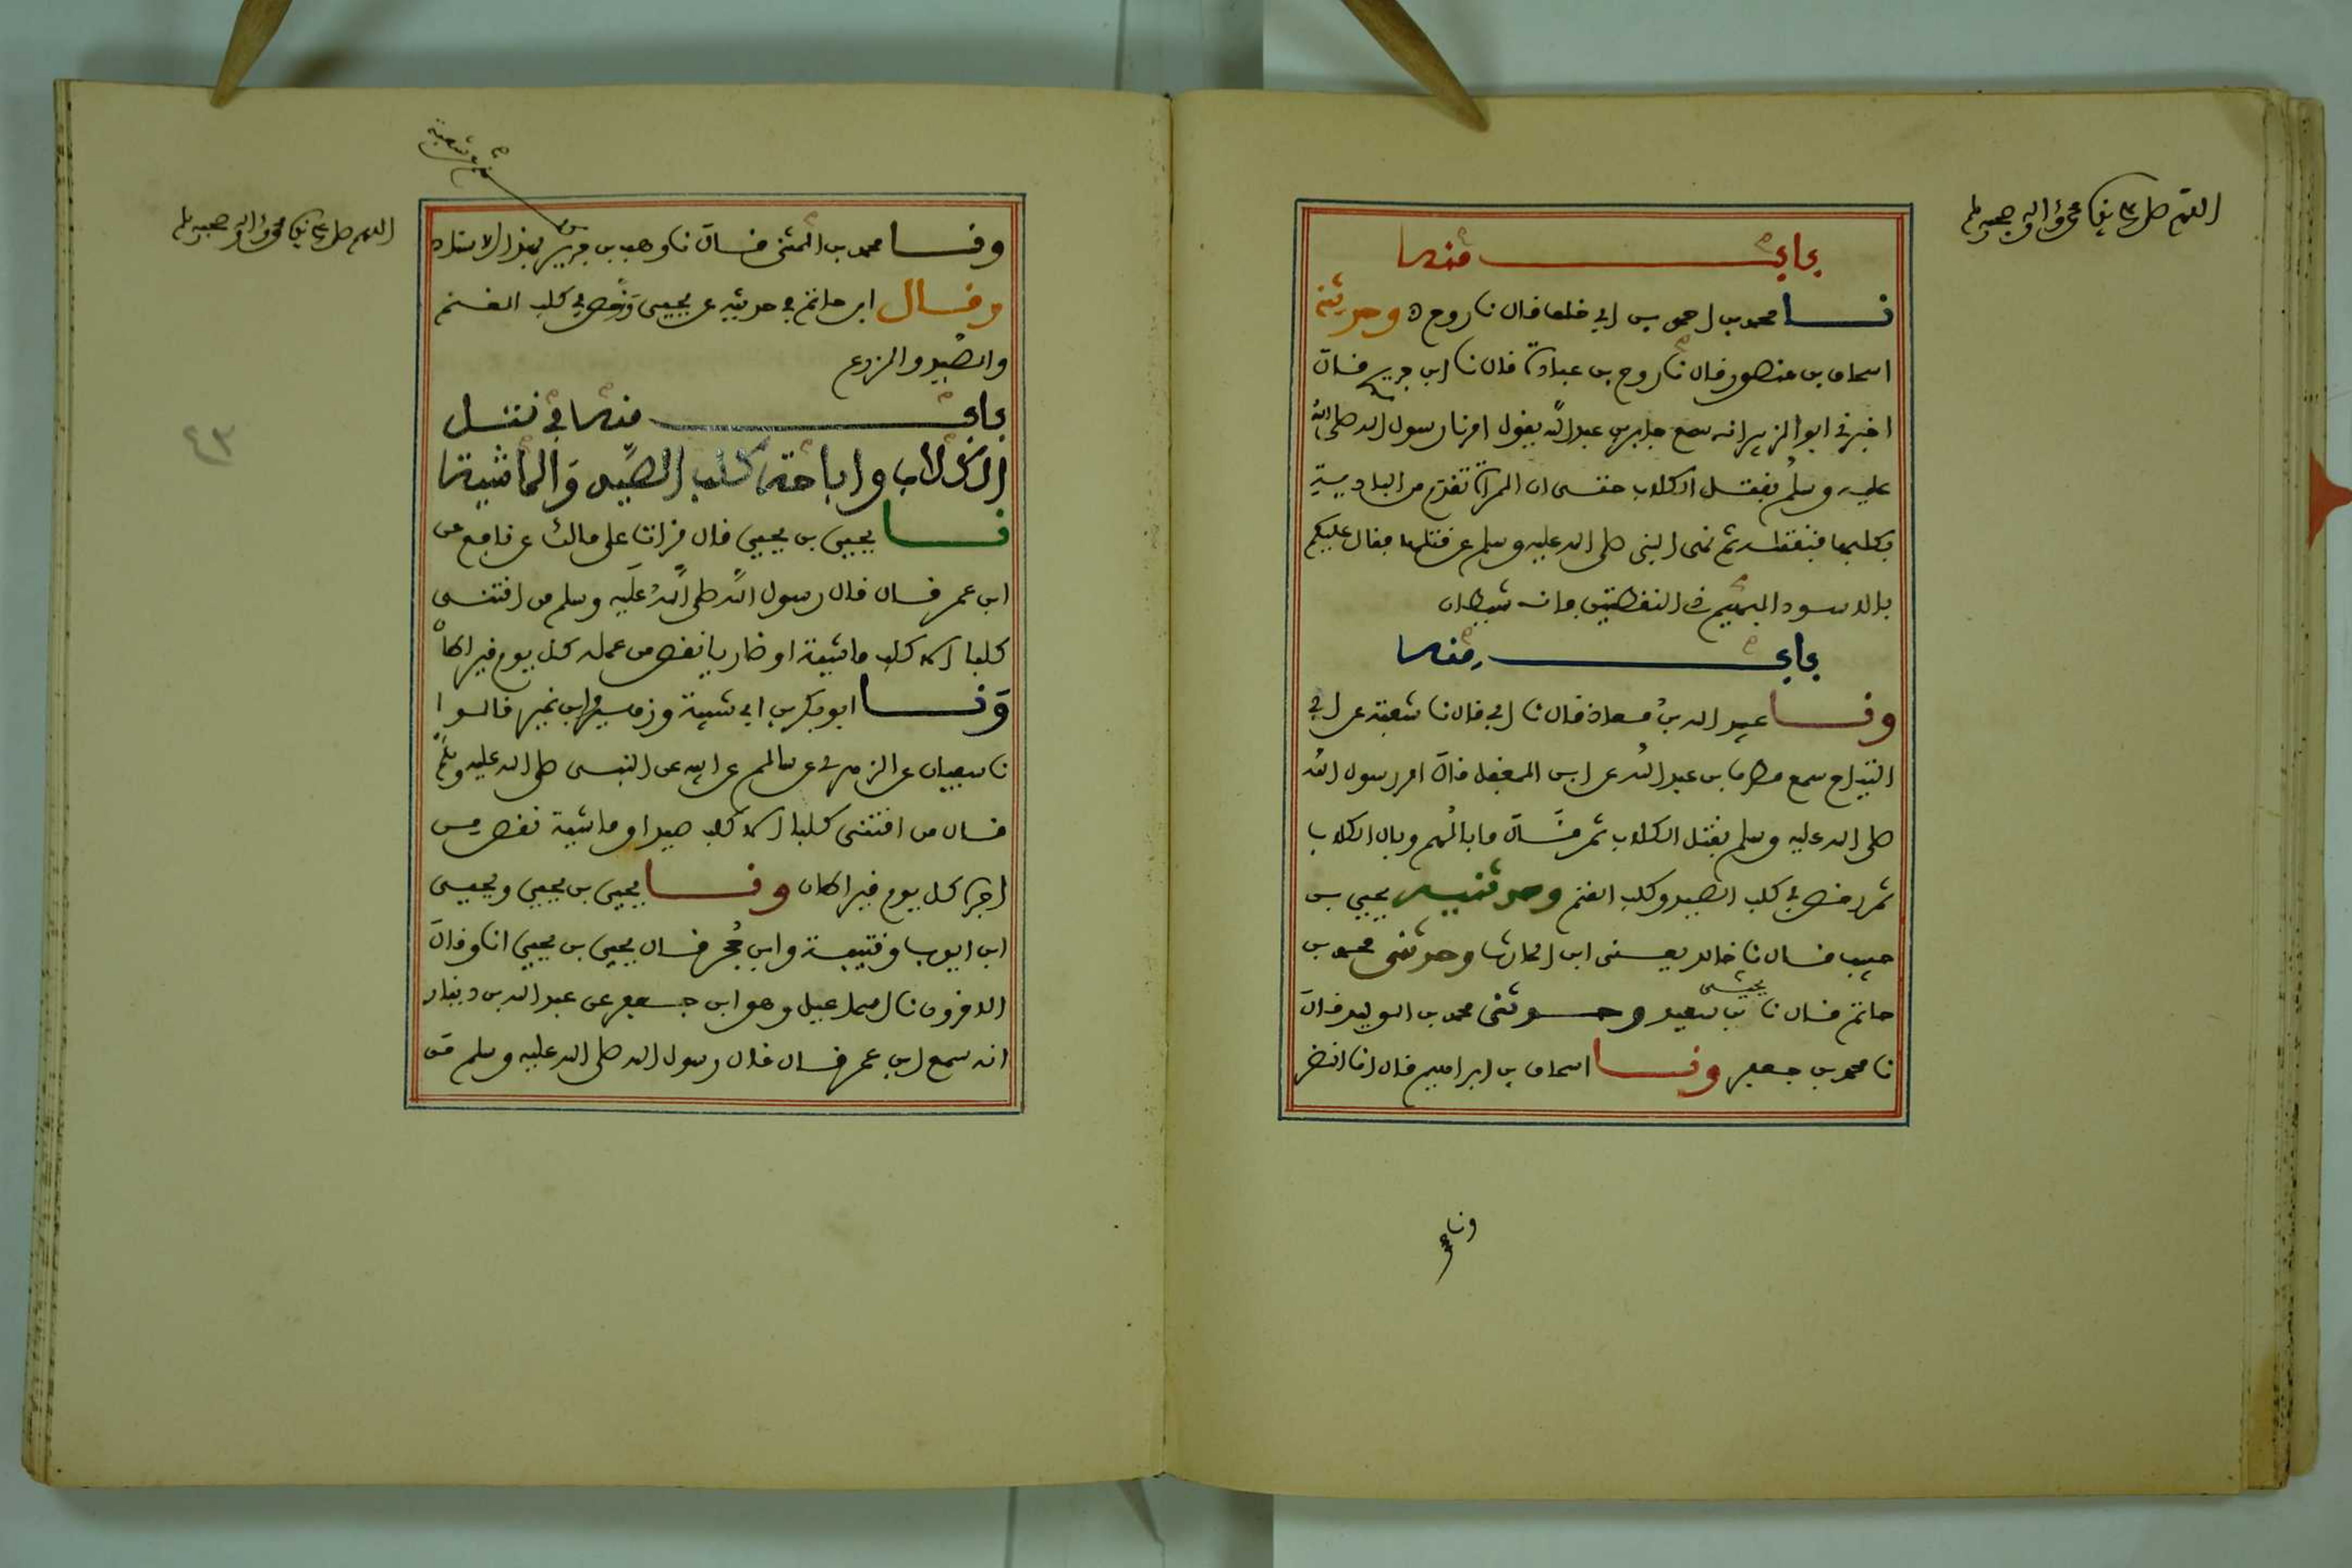 اللهم صل على نبينا محمد واله وصحبه وسلم
باب منه
نا محمد بن احمد بن ابي خلف قال نا روح ح وحدثني
اسحاق بن منصور قال نا روح بن عبادة قال نا ابن جريج قال
اخبرني ابو الزبير انه سمع جابر بن عبد الله يقول امرنا رسول الله صلى الله
عليه وسلم بقتل الكلاب حتى ان المراة تقدم من البادية
بكلبها فنقتله ثم نهى النبي صلى الله عليه وسلم عن قتلها فقال عليكم
بالاسود البهيم ذي النقطتين فانه شيطان
باب منه
ونا عبيد الله بن معاذ قال نا ابي قال نا شعبة عن ابي
التياح سمع مطرف بن عبد الله عن ابن المغفل قال امر رسول الله
صلى الله عليه وسلم بقتل الكلاب ثم قال ما بالهم وبال الكلاب
ثم رخص في كلب الصيد وكلب الغنم وحدثنيه يحيى بن
حبيب قال نا خالد يعني ابن الحارث وحدثني محمد بن
حاتم قال نا يحيى بن سعيد وحدثني محمد بن الوليد قال
نا محمد بن جعفر ونا اسحاق بن ابراهيم قال انا النضر
ونا
اللهم صل على نبينا محمد واله وصحبه وسلم
شعبة
ونا محمد بن المثنى قال نا وهب بن جرير بهذا الاسناد
وقال ابن حاتم في حديثه عن يحيى ورخص في كلب الغنم
والصيد والزرع
باب منه في قتل
الكلاب واباحة كلب الصيد والماشية
نا يحيى بن يحيى قال قرات على مالك عن نافع عن
ابن عمر قال قال رسول الله صلى الله عليه وسلم من اقتنى
كلبا الا كلب ماشية او ضاريا نقص من عمله كل يوم قيراطان
ونا ابو بكر بن ابي شيبة وزهير وابن نمير قالوا
نا سفيان عن الزهري عن سالم عن ابيه عن النبي صلى الله عليه وسلم
قال من اقتنى كلبا الا كلب صيد او ماشية نقص من
اجره كل يوم قيراطان ونا يحيى بن يحيى ويحيى
ابن ايوب وقتيبة وابن حجر قال يحيى بن يحيى انا وقال
الاخرون نا اسماعيل وهو ابن جعفر عن عبد الله بن دينار
انه سمع ابن عمر قال قال رسول الله صلى الله عليه وسلم من
٤٣